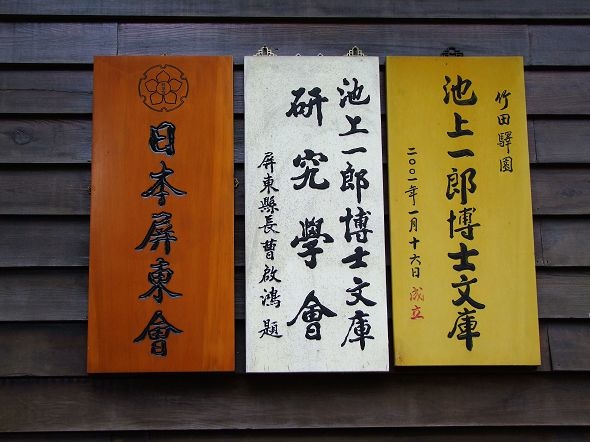 竹田驛園
池上一郎博士文庫
二〇〇一年一月十六日 成立
池上一郎博士文庫
研究學會
屏東縣長曹啟鴻題
日本屏東會